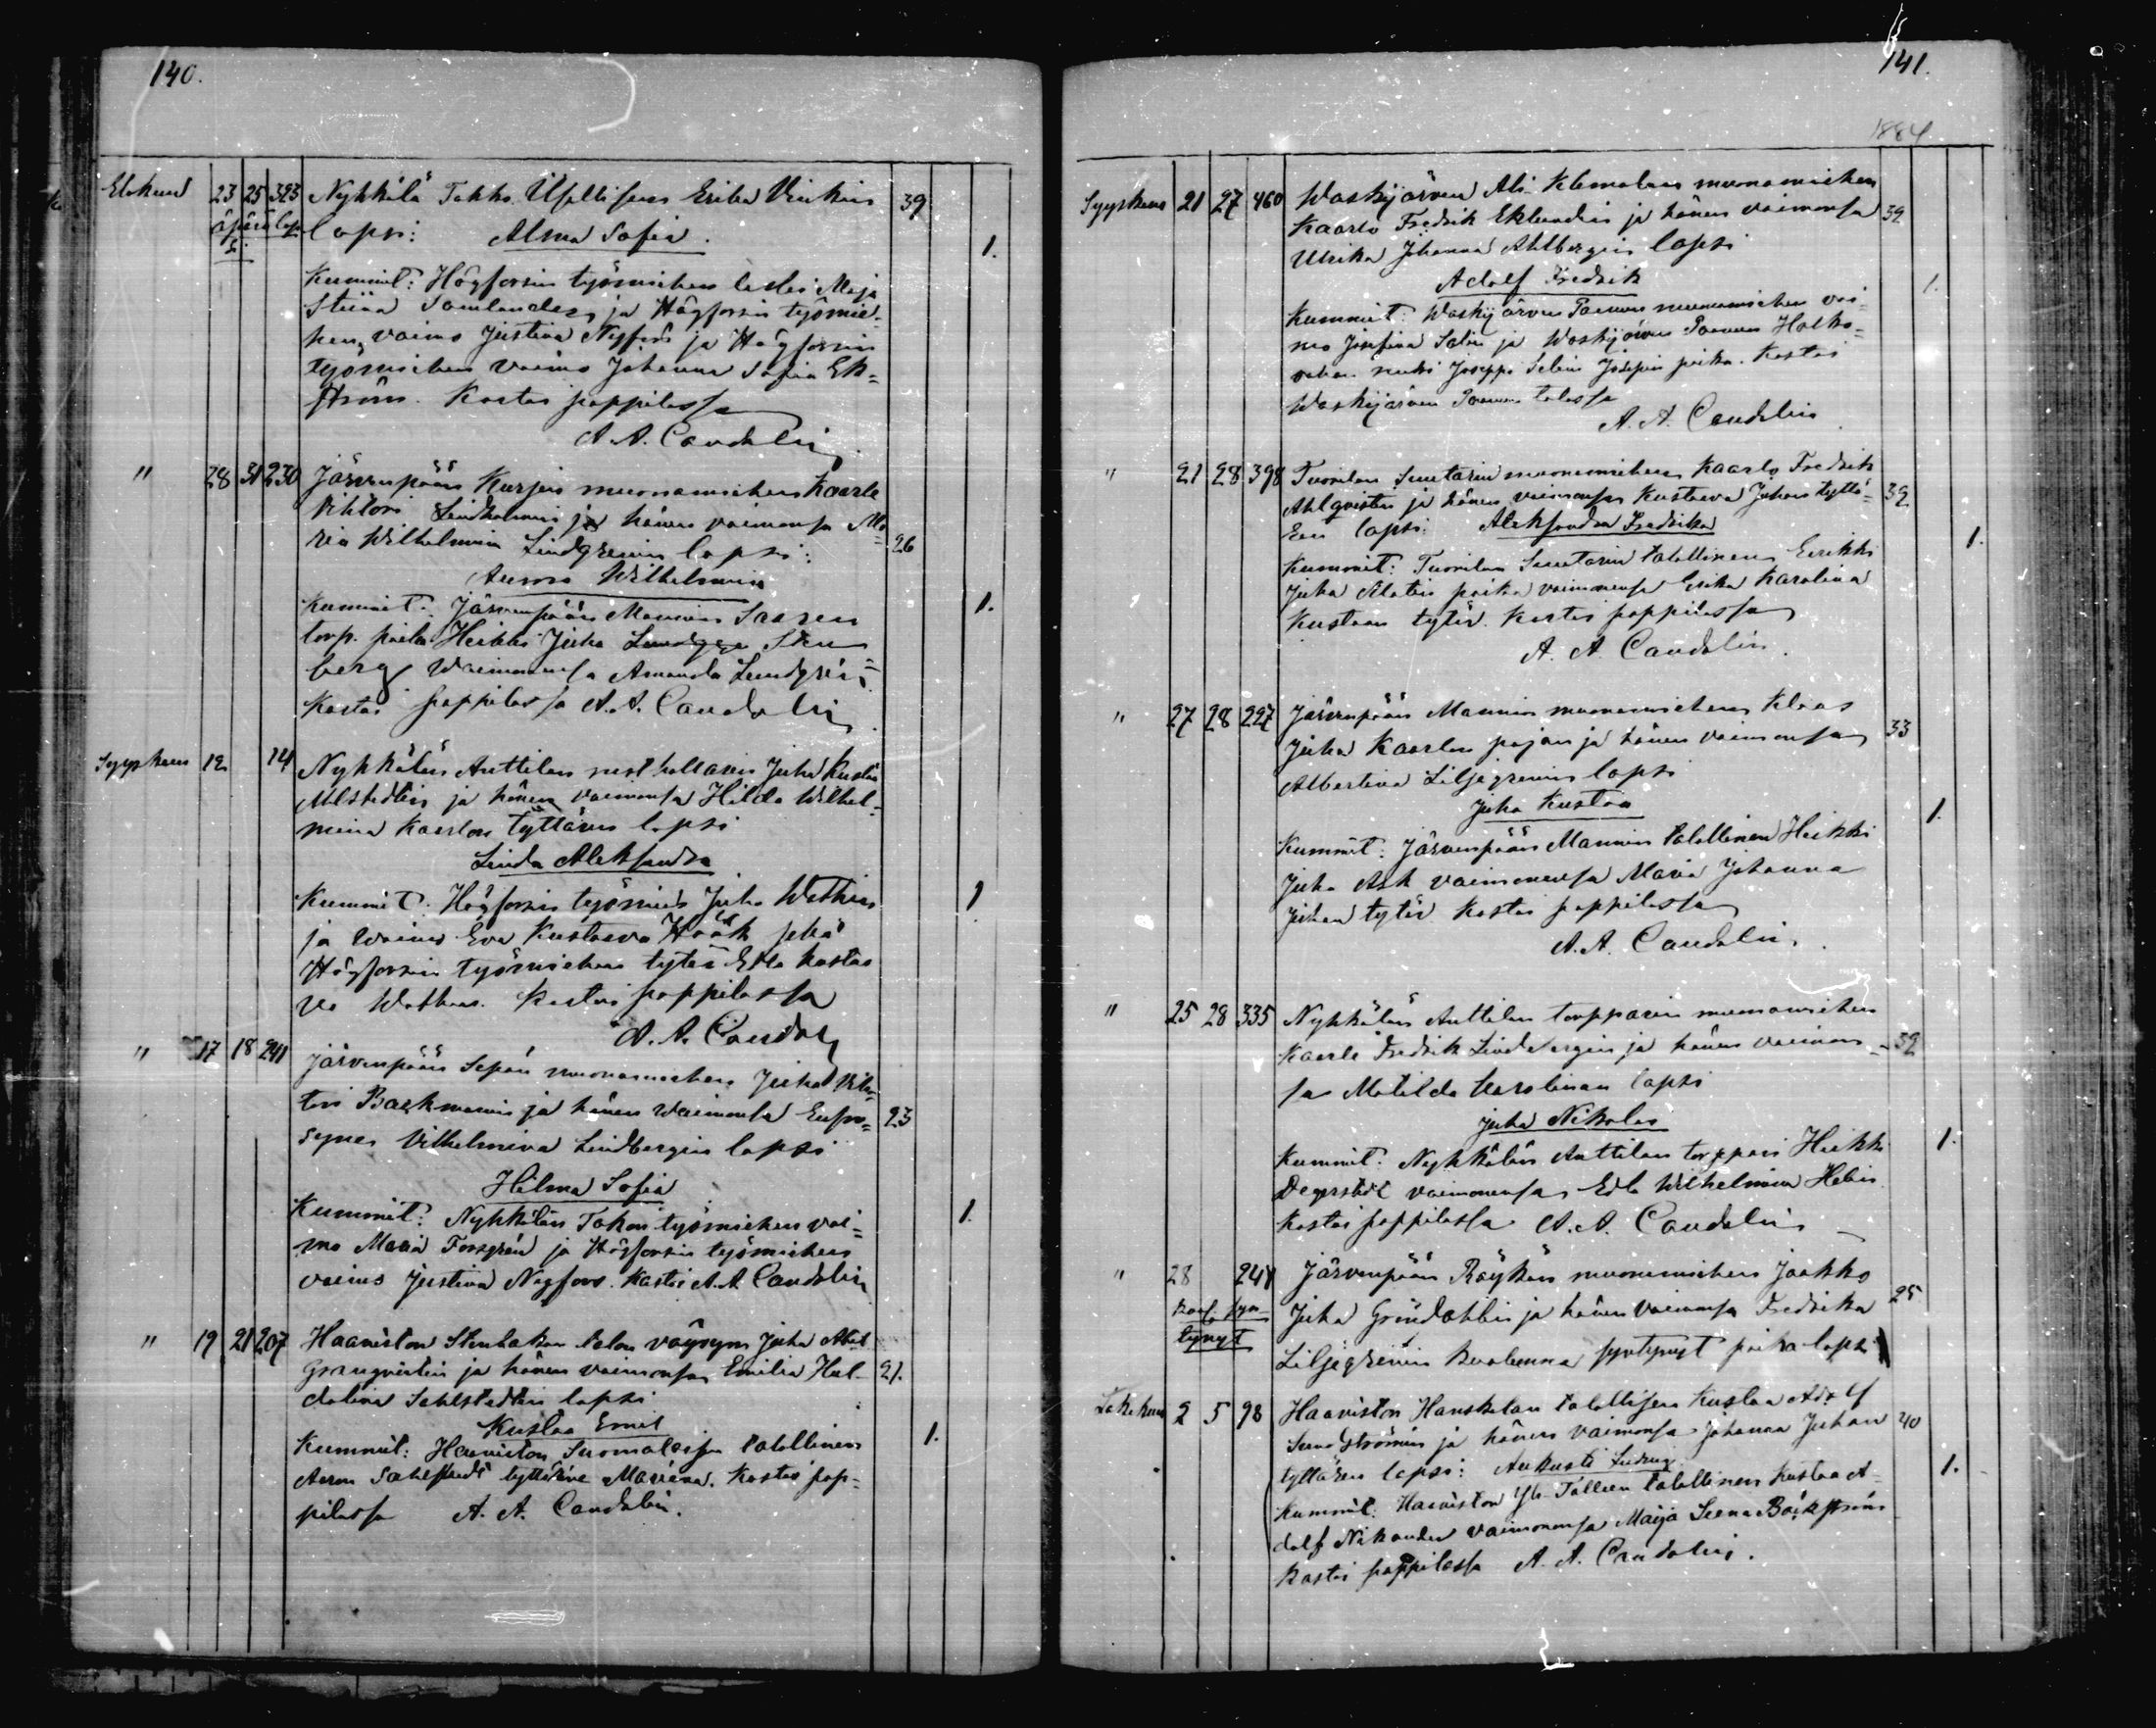 140.
Elokuu 23 25 323 Nykkälä Takko Itsellisen Erika 39
äpärä laps lapsi: Alma Sofia. 1.
Kummit: Högforsin työmiehen leski Maja
Stiina ja Högforsin työmie-
hen vaimo Justina Nyfors ja Högforsin
työmiehen vaimo Johanna Sofia Ek-
ström. Kastoi pappilassa
A. A. Candolin
" 28 31 230 Järvenpään Kurjen muonamiehen Kaarle
Viktori Lindholmin ja hänen vaimonsa Ma-
ria Wilhelmiina Lindgrenin lapsi: 26
Aurora Wilhelmiina
Kummit: Järvenpään Mannin Saaren 1.
torp. poika Heikki Juha Sten
berg Waimonsa Amanda Lundgrén
Kastoi pappilassa A. A. Candolin
Syyskuu 12 14 Nykkälän Anttilan rusthollarin Juha Kustaa
Ahlstedtin ja hänen vaimonsa Hilda Wilhel-
mina Kaarlon tyttären lapsi
Linda Aleksandra
Kummit: Högforsin työmies Juha 1
ja Waimo Eva Kustaava Höök sekä
Högforsin työmiehen tytär Edla Kustaa
va. Kastoi pappilassa
A. A. Candolin
" 17 18 241 Järvenpään Sepän muonamiehen Juha Vik-
tori Backmanin ja hänen Waimonsa Eufro- 23
syne Vilhelmiina Lindbergin lapsi
Hilma Sofia
Kummit: Nykkälän Takon työmiehen vai- 1.
mo Maria Forsgrén ja Högforsin työmiehen
vaimo Justina Nyfors. Kastoi A. A. Candolin
" 19 21 207 Haaviston Stenbakan talon vävyn Juha Abel
Granqvistin ja hänen vaimonsa Emilia Hul- 21.
dalina Sahlstedtin lapsi
Kustaa Emil
Kummit: Haaviston Suomalaisen talollinen 1.
Aaron Sahlstedt tyttärine Mariana. Kastoi pap-
pilassa A. A. Candolin.
141.
1884
Syyskuu 21 27 460 Waskijärven Ali-Klemolan muonamiehen
Kaarlo Fredrik Eklundin ja hänen vaimonsa 39
Ulrika Johanna Ahlbergin lapsi
Adolf Fredrik 1.
Kummit: Waskijärven Paavon muonamiehen vai-
mo Josefina Salin ja Waskijärven Paavon
renki Jooseppi Selin Josefin poika. Kastoi
Waskijärven Paavon talossa
A. A. Candolin
" 21 28 398 Tuorilan Suutarin muonamiehen Kaarlo Fredrik
Ahlqvistin ja hänen vaimonsa Kustaava Juhan tyttä- 39
ren lapsi: Aleksandra Fredrika 1.
Kummit: Tuorilan Suutarin talollinen Eerikki
Juha Matin poika vaimonensa Erika Karolina
Kustaan tytär. Kastoi pappilassa
A. A. Candolin.
" 27 28 227 Järvenpään Mannin muonamiehen Klaas
Juha Kaarlon pojan ja hänen vaimonsa 33
Albertina Liljegrenin lapsi
Juho Kustaa 1.
Kummit: Järvenpään Mannin talollinen Heikki
Juha Ask vaimonensa Maria Johanna
Juhan tytär Kastoi pappilassa
A. A. Candolin.
" 25 28 335 Nykkälän Anttilan torpparin muonamiehen
Kaarle Fredrik Lindbergin ja hänen vaimon- 39
sa Matilda Karolinan lapsi
Juha Nikolai 1.
Kummit: Nykkälän Anttilan torppari Heikki
Degerstedt vaimonensa Edla Wilhelmiina
Kastoi pappilassa A. A. Candolin
" 28 248 Järvenpään Röykän muonamiehen Jaakko
kuol. syn- Juha Gröndahlin ja hänen vaimonsa Fredrika 25
tynyt Liljegrenin kuolleena syntynyt poika lapsi
Lokakuu 2 5 98 Haaviston Hanskalan talollisen Kustaa Adolf
Sundströmin ja hänen vaimonsa Johanna Juhan 40
tyttären lapsi: Aukusti 1.
Kummit: Haaviston Yli-Tallin talollinen Kustaa A-
dolf Nikander vaimonensa Maija Leena Bäckström
Kastoi pappilassa A. A. Candolin.